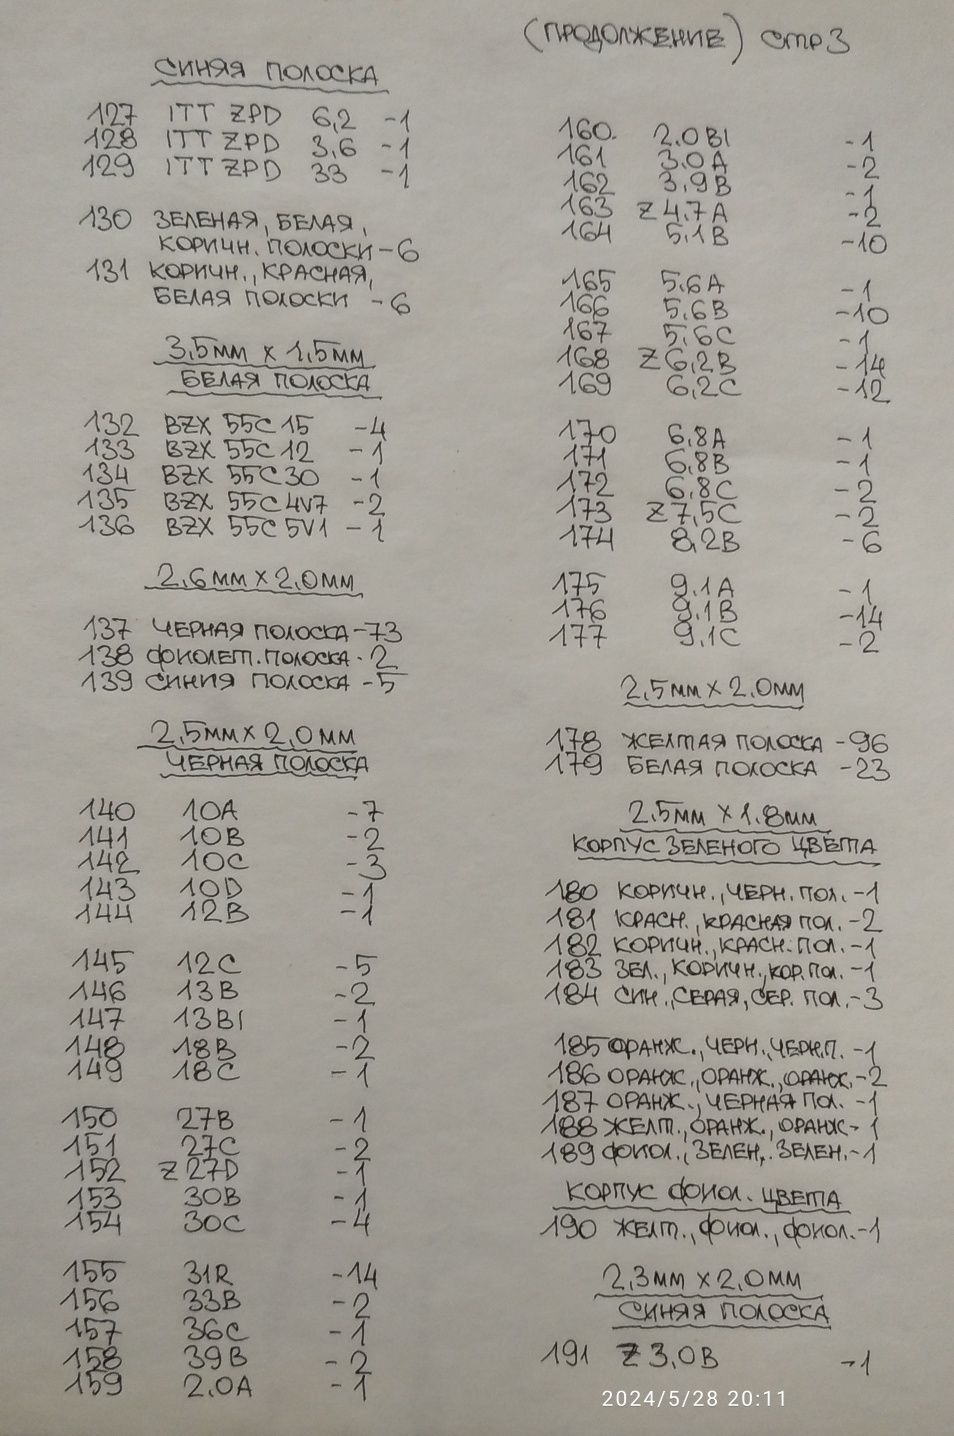 (ПРОДОЛЖЕНИЕ) стр 3
СИНЯЯ ПОЛОСКА
127 ITT ZPD 6,2 -1
128 ITT ZPD 3,6 -1
129 ITT ZPD 33 -1
130 ЗЕЛЕНАЯ, БЕЛАЯ,
КОРИЧН. ПОЛОСКИ -6
131 КОРИЧН., КРАСНАЯ,
БЕЛАЯ ПОЛОСКИ -6
3,5мм x 1,5мм
БЕЛАЯ ПОЛОСКА
132 BZX 55C 15 -4
133 BZX 55C 12 -1
134 BZX 55C 30 -1
135 BZX 55C 4V7 -2
136 BZX 55C 5V1 -1
2,6мм x 2,0мм
137 ЧЕРНАЯ ПОЛОСКА -73
138 ФИОЛЕТ. ПОЛОСКА - 2
139 СИНИЯ ПОЛОСКА -5
2,5мм x 2,0мм
ЧЕРНАЯ ПОЛОСКА
140 10A -7
141 10B -2
142 10C -3
143 10D -1
144 12B -1
145 12C -5
146 13B -2
147 13B1 -1
148 18B -2
149 18C -1
150 27B -1
151 27C -2
152 Z 27D -1
153 30B -1
154 30C -4
155 31R -14
156 33B -2
157 36C -1
158 39B -2
159 2.0A -1
160. 2.0B1 -1
161 3.0A -2
162 3,9B -1
163 Z 4.7A -2
164 5,1B -10
165 5,6A -1
166 5,6B -10
167 5,6C -1
168 Z 6,2B -14
169 6,2C -12
170 6,8A -1
171 6,8B -1
172 6,8C -2
173 Z 7,5C -2
174 8,2B -6
175 9.1A -1
176 9.1B -14
177 9,1C -2
2,5мм x 2.0мм
178 ЖЕЛТАЯ ПОЛОСКА -96
179 БЕЛАЯ ПОЛОСКА -23
2.5мм x 1.8мм
КОРПУС ЗЕЛЕНОГО ЦВЕТА
180 КОРИЧН., ЧЕРН. ПОЛ. -1
181 КРАСН., КРАСНАЯ ПОЛ. -2
182 КОРИЧН., КРАСН. ПОЛ. -1
183 ЗЕЛ., КОРИЧН., КОР. ПОЛ. -1
184 СИН., СЕРАЯ, СЕР. ПОЛ. -3
185 ОРАНЖ., ЧЕРН., ЧЕРН.П. -1
186 ОРАНЖ., ОРАНЖ., ОРАНЖ. -2
187 ОРАНЖ., ЧЕРНАЯ ПОЛ. -1
188 ЖЕЛТ., ОРАНЖ., ОРАНЖ - 1
189 ФИОЛ., ЗЕЛЕН., ЗЕЛЕН. -1
КОРПУС ФИОЛ. ЦВЕТА
190 ЖЕЛТ., ФИОЛ., ФИОЛ. -1
2,3мм x 2,0мм
СИНЯЯ ПОЛОСКА
191 Z 3,0B -1
2024/5/28 20:11